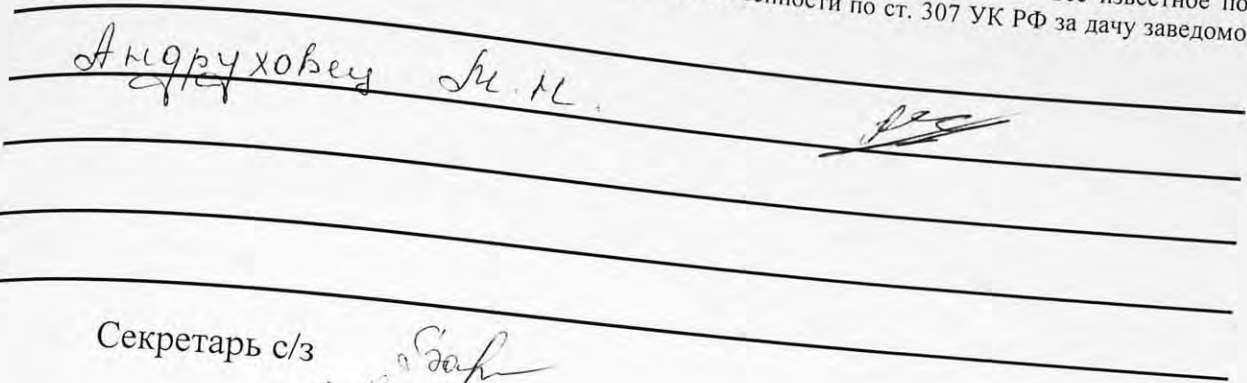 известное по
по ст. 307 УК РФ за дачу заведомо
Андруховец М.М.
Секретарь с/з